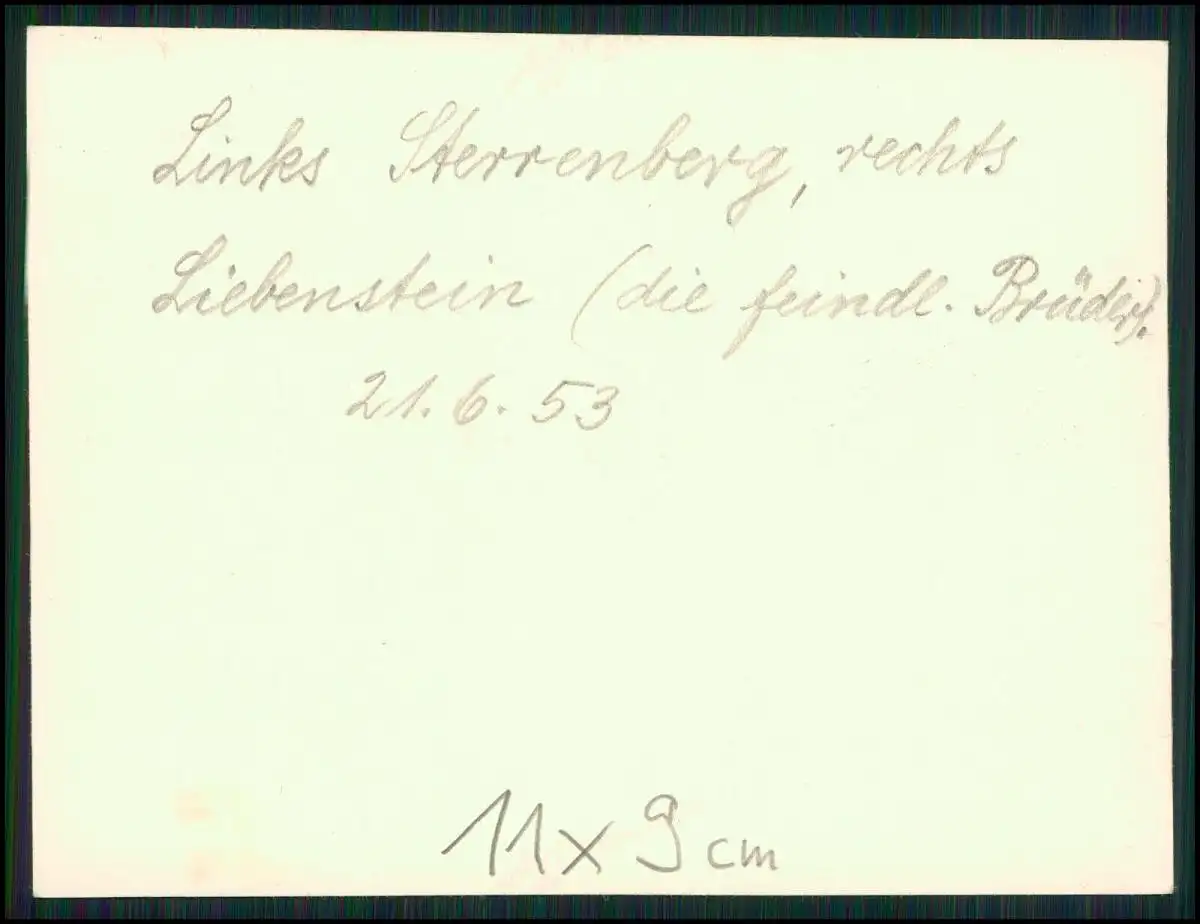 Links Sterrenberg, rechts
Liebenstein (die feindl. Brüder).
21. 6. 53
11 x 9 cm